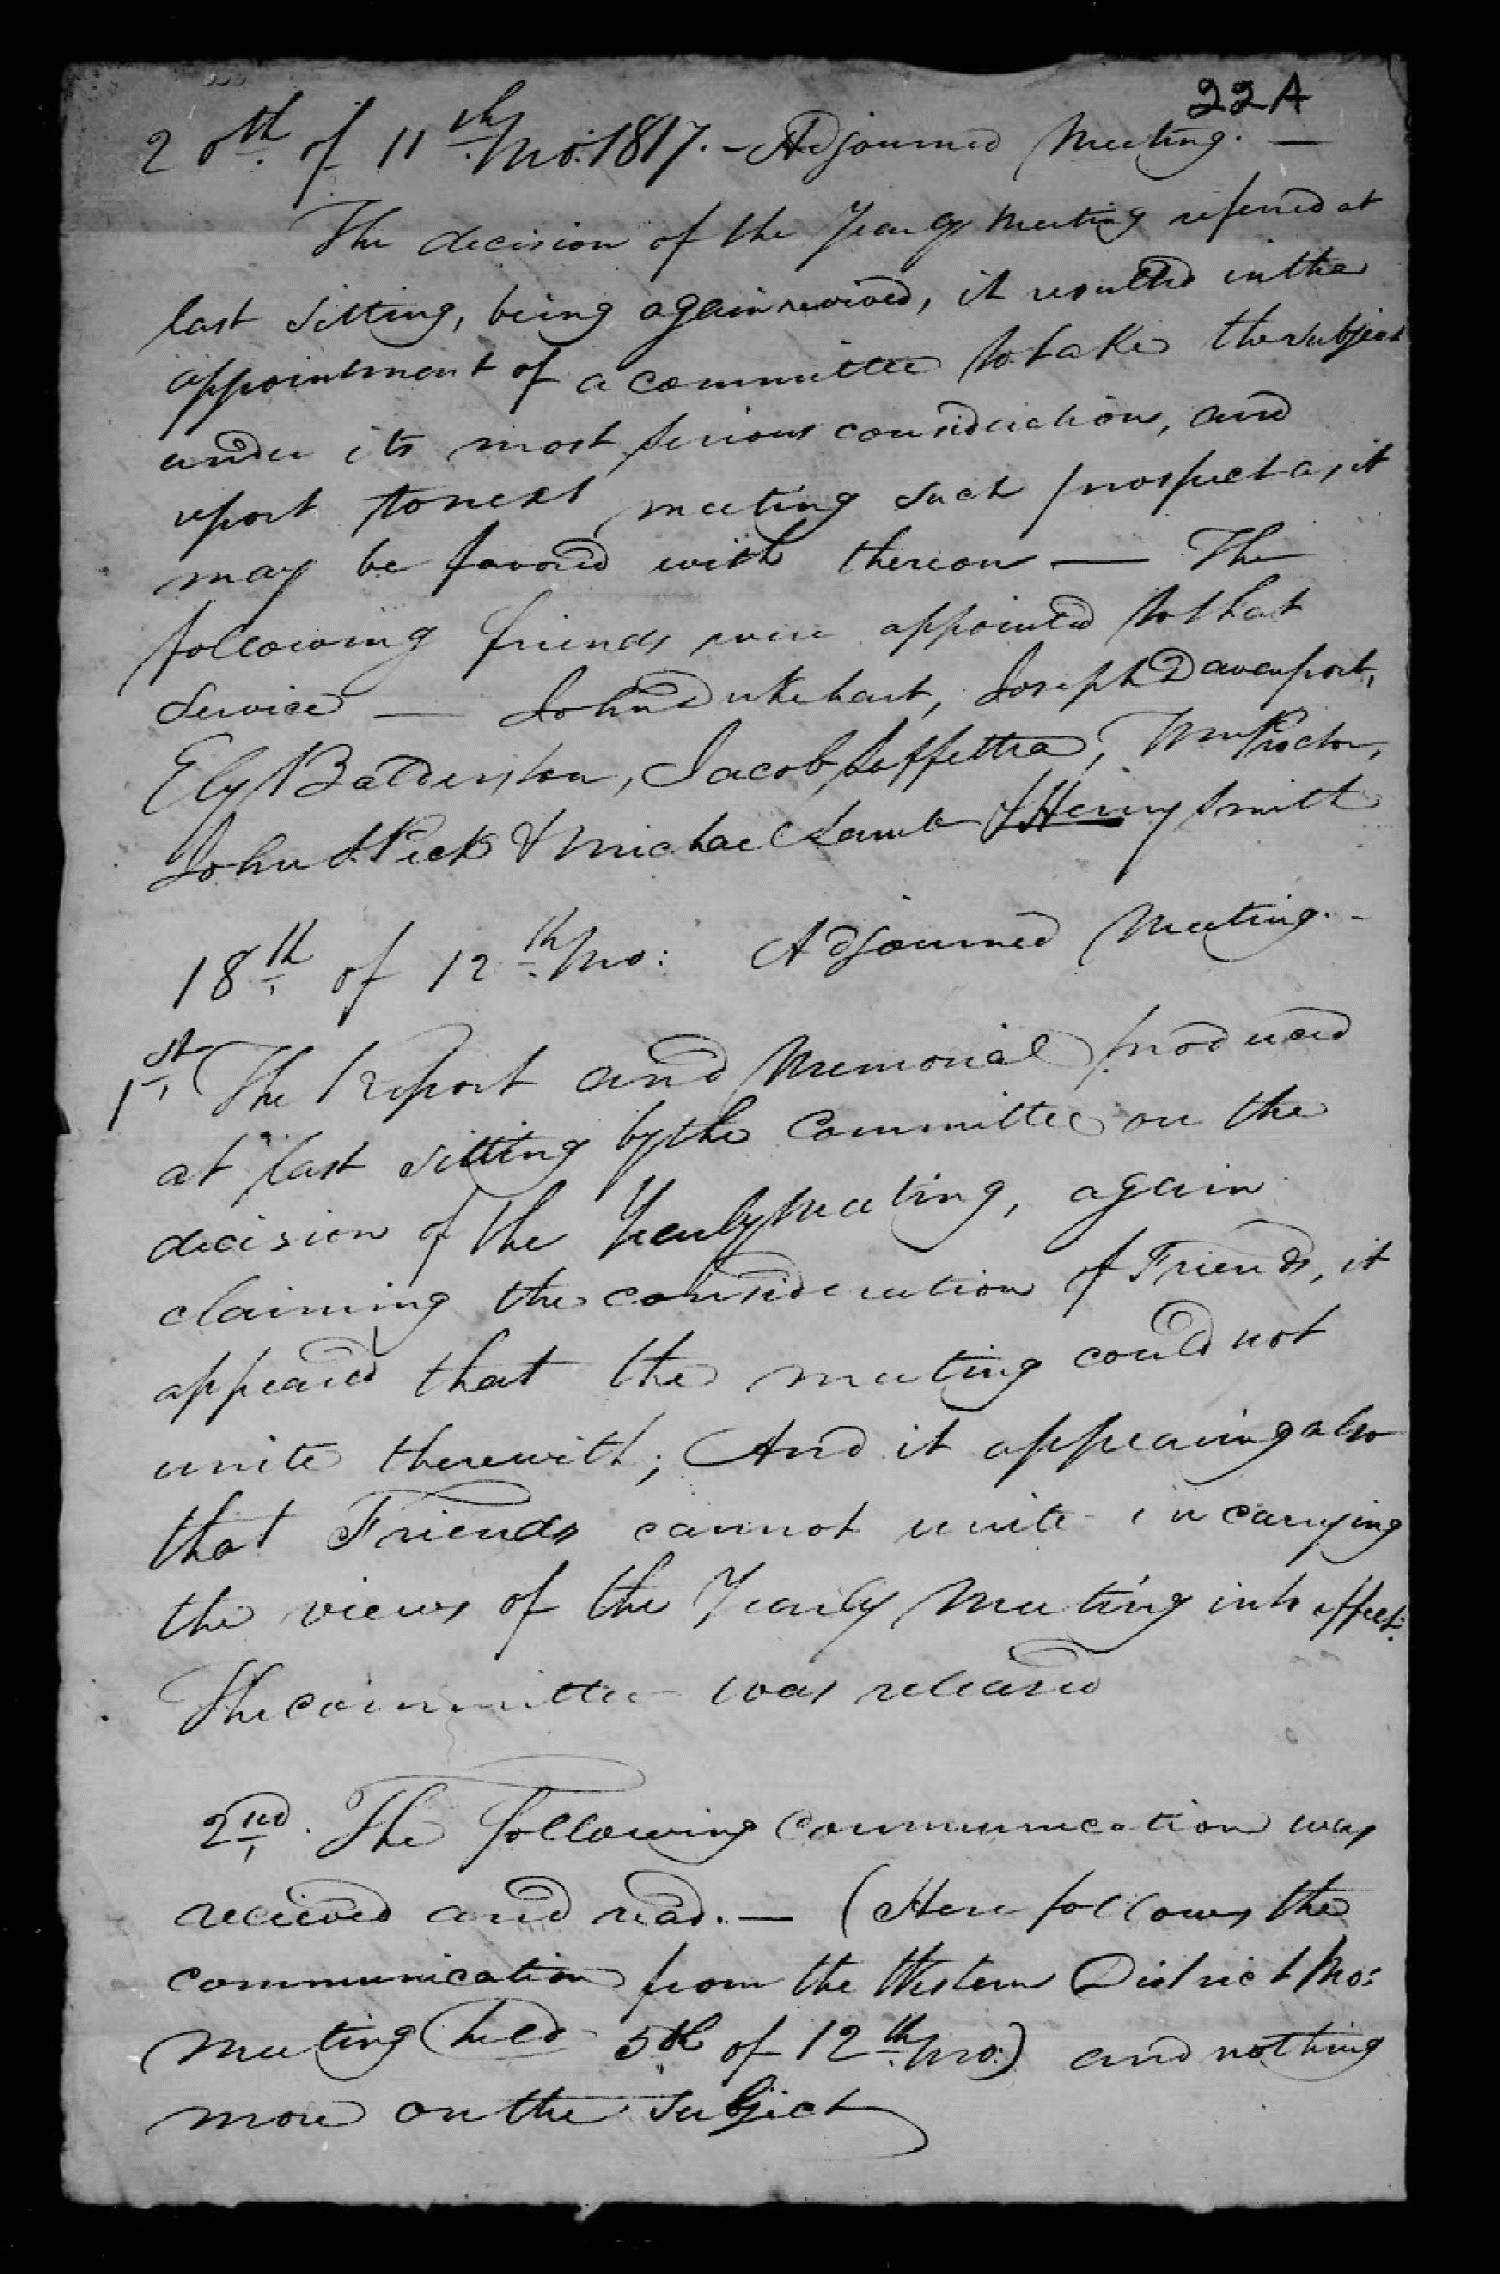 22A
20th of 11th Mo: 1817. - Adjourned Meeting. —
The decision of the Yearly Meeting referred at
last sitting, being again revived, it resulted in the
appointment of a committee to take the subject
under its most serious consideration, and
report to next meeting such prospect as it
may be favored with thereon — The
following friends were appointed to that
service — John Dukehart, Joseph Davenport,
Ely Balderston, Jacob Laffettra, Wm Proctor,
John S Peck & Michael Lamb & Henry Smith
18th of 12th Mo: Adjourned Meeting. -
1st The Report and Memorial produced
at last sitting by the Committee on the
decision of the Yearly Meeting, again
claiming the consideration of Friends, it
appeared that the meeting could not
unite therewith; And it appearing also
that Friends cannot unite in carrying
the views of the Yearly Meeting into effect:
The committee was released
2nd. The following communication was
recieved and read. — (Here follows the
communication from the Western District Mo:
Meeting held 5th of 12th mo:) and nothing
more on the subject